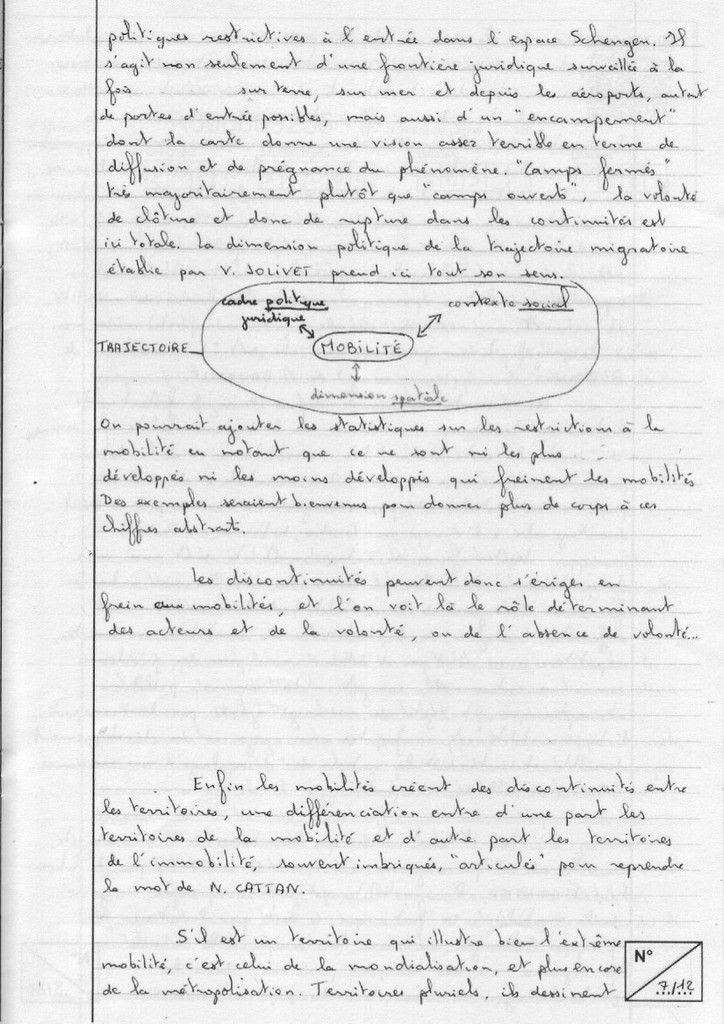 politiques restrictives à l'entrée dans l'espace Schengen. Il
s'agit non seulement d'une frontière juridique surveillée à la
fois sur terre, sur mer et depuis les aéroports, autant
de portes d'entrée possibles, mais aussi d'un "encampement"
dont la carte donne une vision assez terrible en terme de
diffusion et de prégnance du phénomène. "Camps fermés"
très majoritairement plutôt que "camps ouverts", la volonté
de clôture et donc de rupture dans les continuités est
ici totale. La dimension politique de la trajectoire migratoire
établie par V. JOLIVET prend ici tout son sens.
cadre politique contexte social
juridique
TRAJECTOIRE MOBILITÉ
dimension spatiale
On pourrait ajouter les statistiques sur les restrictions à la
mobilité en notant que ce ne sont ni les plus
développés ni les moins développés qui freinent les mobilités
Des exemples seraient bienvenus pour donner plus de corps à ces
chiffres abstraits.
Les discontinuités peuvent donc s'ériger en
frein aux mobilités, et l'on voit là le rôle déterminant
des acteurs et de la volonté, ou de l'absence de volonté...
Enfin les mobilités créent des discontinuités entre
les territoires, une différenciation entre d'une part les
territoires de la mobilité et d'autre part les territoires
de l'immobilité, souvent imbriqués, "articulés" pour reprendre
le mot de N. CATTAN.
S'il est un territoire qui illustre bien l'extrême
mobilité, c'est celui de la mondialisation, et plus encore
de la métropolisation. Territoires pluriels, ils dessinent
N°
7/12